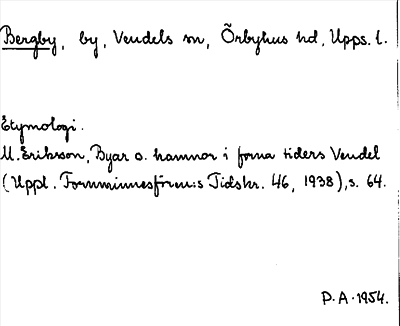 Bergby, by, Vendels sn, Örbyhus hd, Upps. l.
Etymologi.
M. Eriksson, Byar o. hamnar i forna tiders Vendel
(Uppl. Fornminnesfören:s Tidskr. 46, 1938), s. 64.
P.A. 1954.